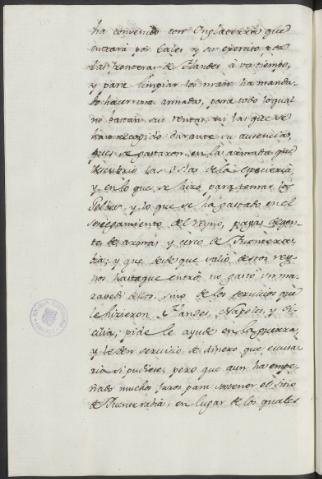 ha convenido con Inglaterra que
entrará por Cales y su exercito, o a
las fronteras de Flandes a un tiempo,
y para limpiar los mares ha manda-
do hacer una armada, para todo lo qual
no bastan sus rentas, ni las que se
han recogido durante su ausencia,
pues se gastaron en la armada que
descubrio las Islas de la especeria
y en lo que se hizo para tomar los
Gelbes, y lo que se ha gastado en el
del Reyno, pagas de gen-
tes de armas y cerco de Fuenterra-
bia; y que desde que salió de estos rey-
nos hasta que entró, no gastó un ma-
ravedi de ellos, sino de los servicios que
le hicieron Flandes, Napoles, y Si-
cilia; pide le ayuden en la guerra,
y le den servicio de dinero que escusa-
ria si pudiese; pero que aun ha empe-
ñado muchos juros para socorrer el sitio
de Fuenterrabia, en lugar de los quales